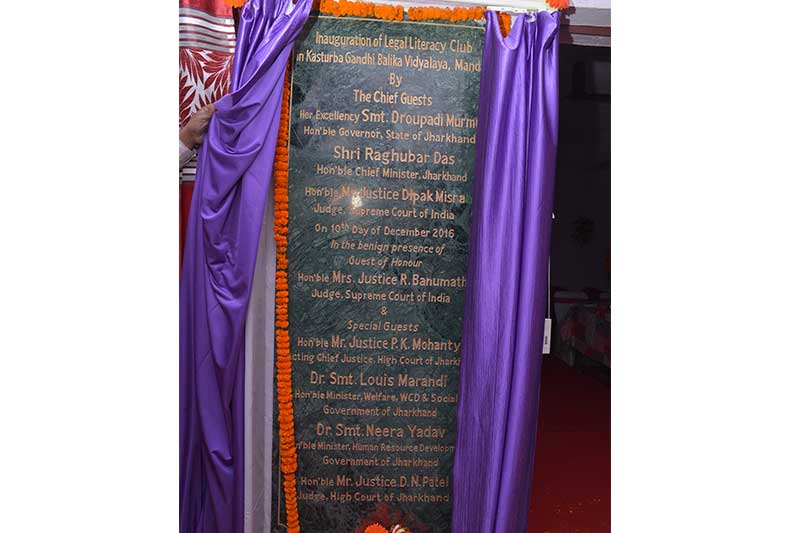 Inauguration of Legal Literacy Club
in Kasturba Gandhi Balika Vidyalaya, Mand
By
The Chief Guests
Her Excellency Smt. Droupadi Murm
Hon'ble Governor, State of Jharkhand
Shri Raghubar Das
Hon'ble Chief Minister, Jharkhand
Hon'ble Mr. Justice Dipak Misra
Judge, Supreme Court of India
On 10th Day of December 2016
In the benign presence of
Guest of Honour
Hon'ble Mrs. Justice R. Banumath
Judge, Supreme Court of India
&
Special Guests
Hon'ble Mr. Justice P.K. Mohanty
cting Chief Justice, High Court of Jharkh
Dr. Smt. Louis Marandi
Hon'ble Minister, Welfare, WCD & Social
Government of Jharkhand
Dr. Smt. Neera Yadav
n'ble Minister, Human Resource Developm
Government of Jharkhand
Hon'ble Mr. Justice D.N. Patel
Judge, High Court of Jharkhand